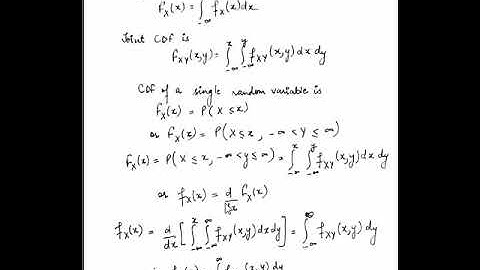 F_X(x) = ∫_{-∞} f_X(x) dx
Joint CDF is
F_{XY}(x,y) = ∫_{-∞}^{x} ∫_{-∞}^{y} f_{XY}(x,y) dx dy
CDF of a single random variable is
F_X(x) = P(X ≤ x)
or F_X(x) = P(X ≤ x, -∞ < y ≤ ∞)
F_X(x) = P(X ≤ x, -∞ < y ≤ ∞) = ∫_{-∞}^{x} ∫_{-∞}^{y} f_{XY}(x,y) dx dy
or f_X(x) = d/dx F_X(x)
f_X(x) = d/dx [∫_{-∞}^{x} ∫_{-∞}^{∞} f_{XY}(x,y) dx dy] = ∫_{-∞}^{∞} f_{XY}(x,y) dy